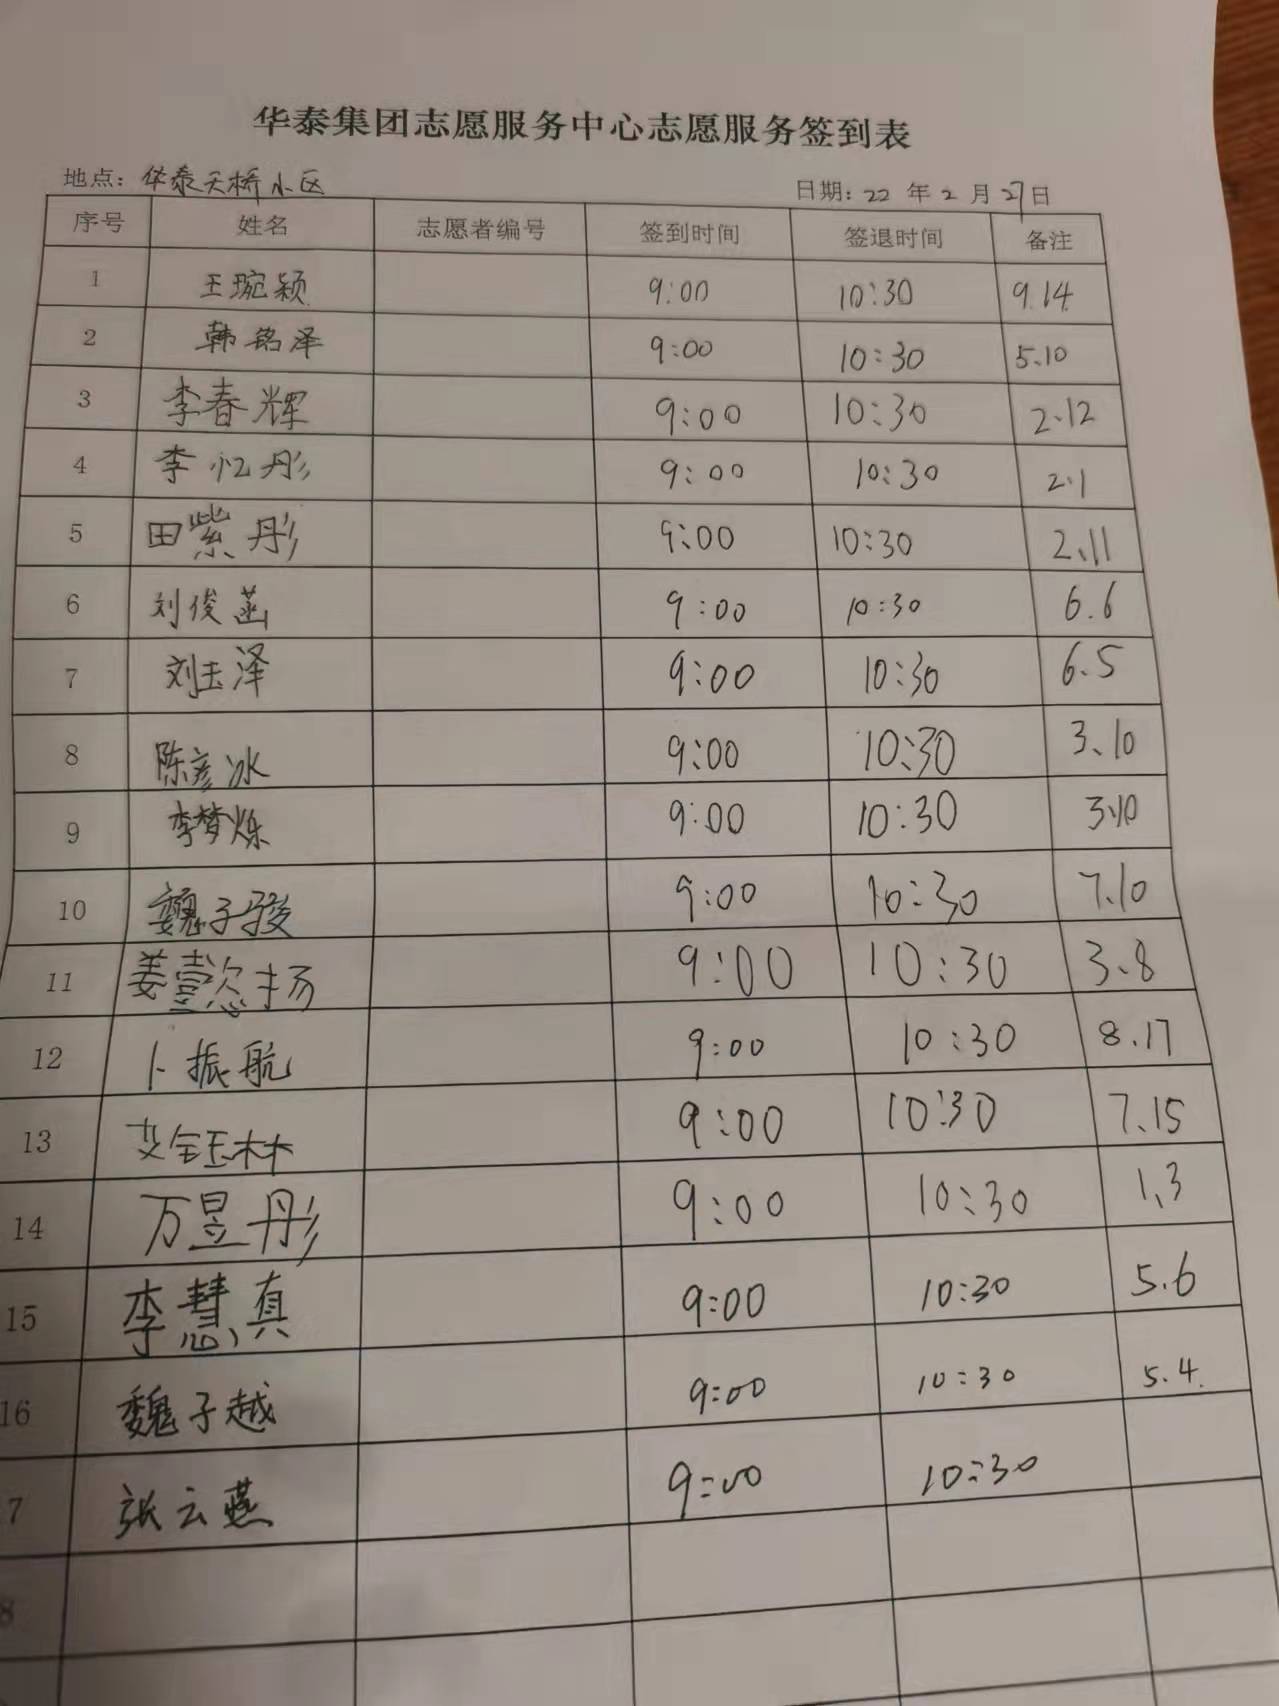 华泰集团志愿服务中心志愿服务签到表
地点：华泰天桥小区 日期：22年2月27日
序号 姓名 志愿者编号 签到时间 签退时间 备注
1 王琬颖 9:00 10:30 9.14
2 韩铭泽 9:00 10:30 5.10
3 李春辉 9:00 10:30 2.12
4 李忆彤 9:00 10:30 2.1
5 田紫彤 9:00 10:30 2.11
6 刘俊菡 9:00 10:30 6.6
7 刘玉泽 9:00 10:30 6.5
8 陈彦冰 9:00 10:30 3.10
9 李梦烁 9:00 10:30 3.10
10 魏子骏 9:00 10:30 7.10
11 姜壹恣扬 9:00 10:30 3.8
12 卜振航 9:00 10:30 8.17
13 艾钰林 9:00 10:30 7.15
14 万昱彤 9:00 10:30 1.3
15 李慧真 9:00 10:30 5.6
16 魏子越 9:00 10:30 5.4.
7 张云燕 9:00 10:30
8